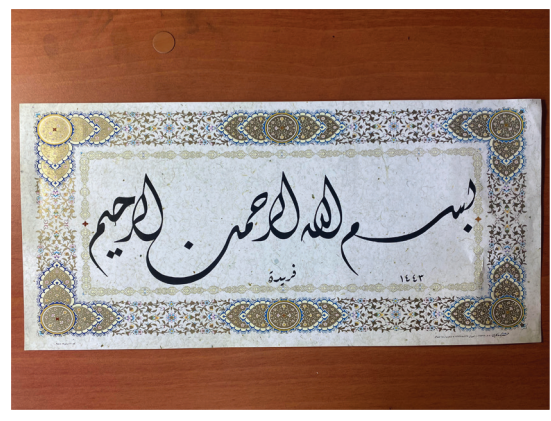 بسم الله الرحمن الرحيم
فريدة
١٤٤٣